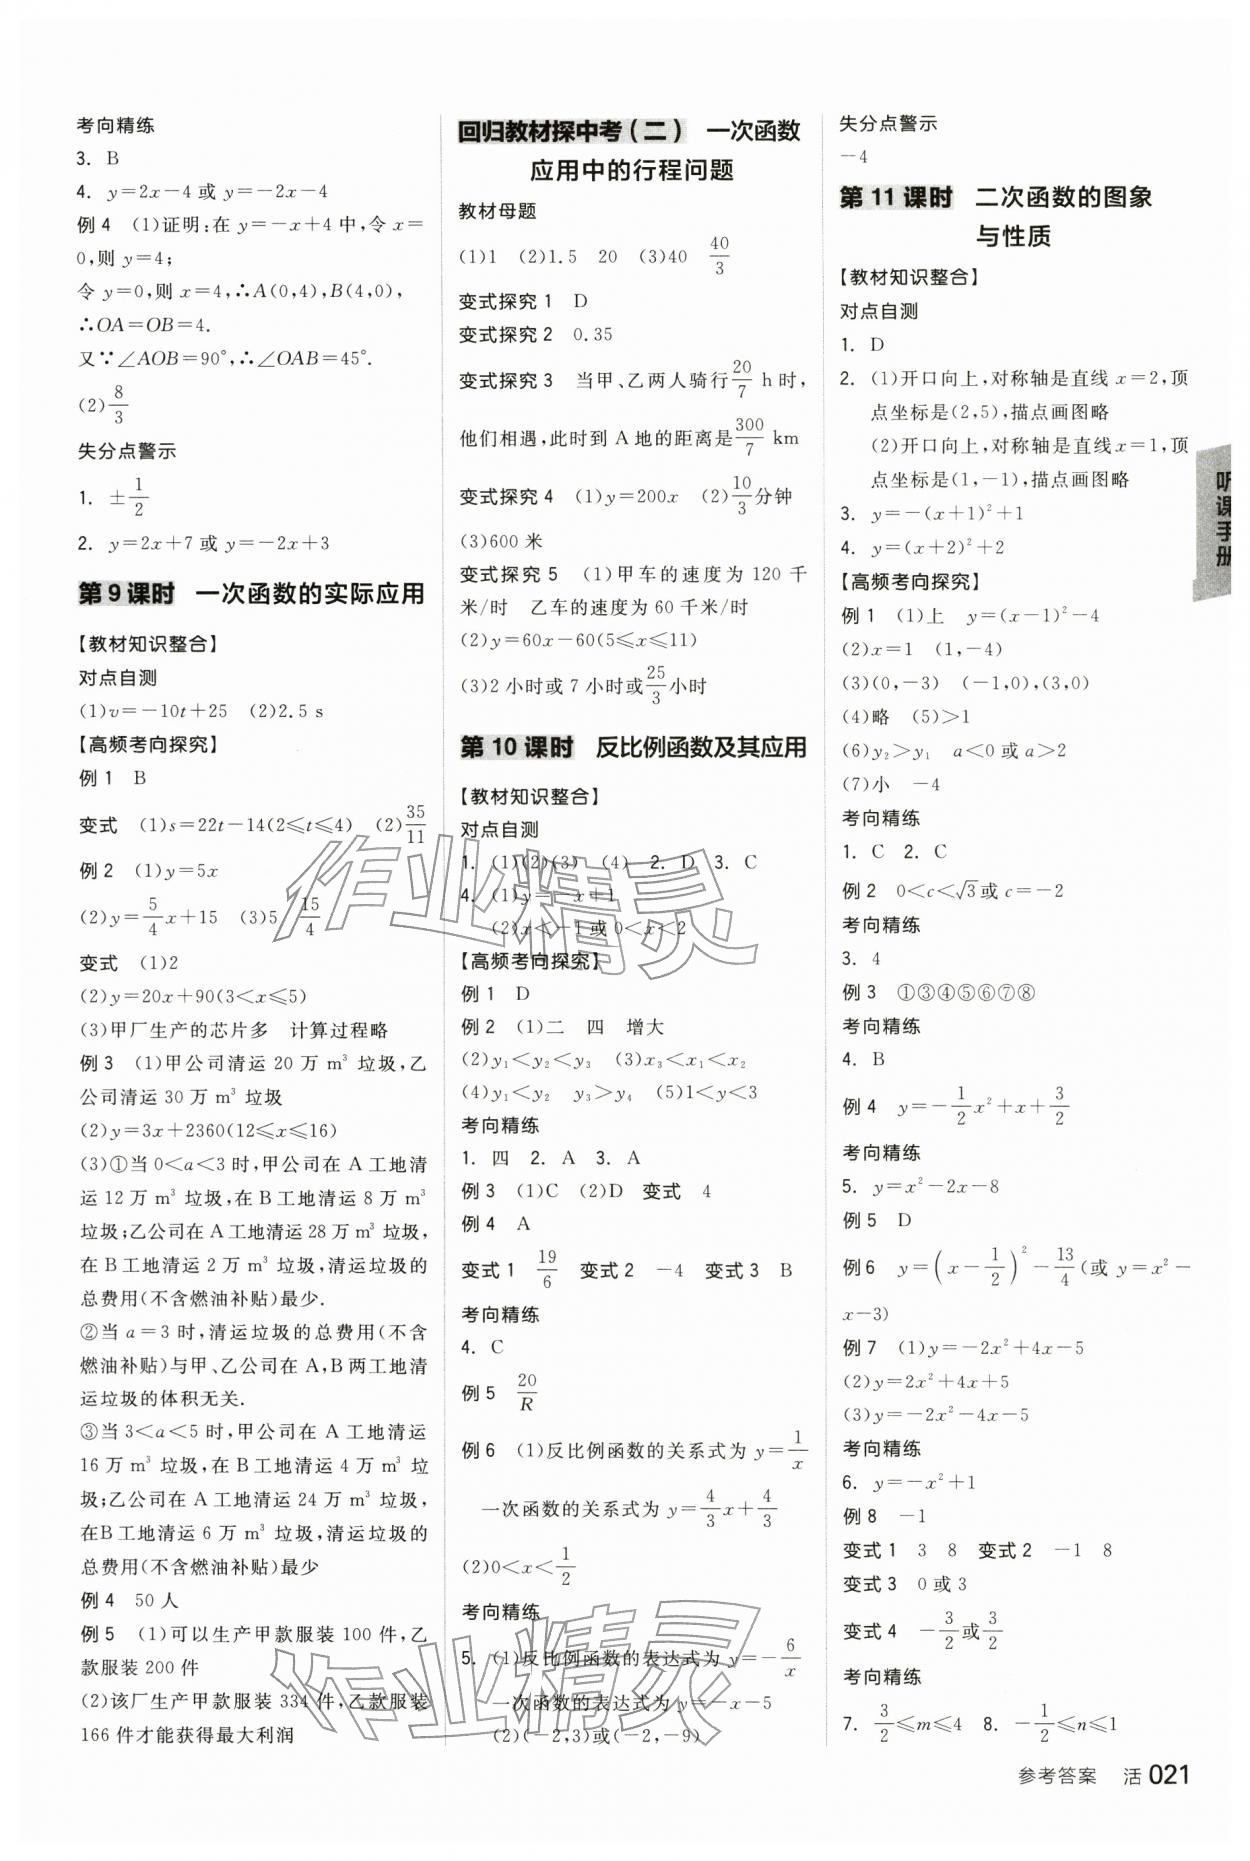 考向精练
3. B
4. y=2x-4 或 y=-2x-4
例 4 (1)证明:在 y=-x+4 中,令 x=
0,则 y=4;
令 y=0,则 x=4,∴A(0,4),B(4,0),
∴OA=OB=4.
又∵∠AOB=90°,∴∠OAB=45°.
(2)8/3
失分点警示
1. ±1/2
2. y=2x+7 或 y=-2x+3
第 9 课时 一次函数的实际应用
【教材知识整合】
对点自测
(1)v=-10t+25 (2)2.5 s
【高频考向探究】
例 1 B
变式 (1)s=22t-14(2≤t≤4) (2)35/11
例 2 (1)y=5x
(2)y=5/4x+15 (3)5 15/4
变式 (1)2
(2)y=20x+90(3<x≤5)
(3)甲厂生产的芯片多 计算过程略
例 3 (1)甲公司清运 20 万 m³ 垃圾,乙
公司清运 30 万 m³ 垃圾
(2)y=3x+2360(12≤x≤16)
(3)①当 0<a<3 时,甲公司在 A 工地清
运 12 万 m³ 垃圾,在 B 工地清运 8 万 m³
垃圾;乙公司在 A 工地清运 28 万 m³ 垃圾,
在 B 工地清运 2 万 m³ 垃圾,清运垃圾的
总费用(不含燃油补贴)最少.
②当 a=3 时,清运垃圾的总费用(不含
燃油补贴)与甲、乙公司在 A,B 两工地清
运垃圾的体积无关.
③当 3<a<5 时,甲公司在 A 工地清运
16 万 m³ 垃圾,在 B 工地清运 4 万 m³ 垃
圾;乙公司在 A 工地清运 24 万 m³ 垃圾,
在 B 工地清运 6 万 m³ 垃圾,清运垃圾的
总费用(不含燃油补贴)最少
例 4 50 人
例 5 (1)可以生产甲款服装 100 件,乙
款服装 200 件
(2)该厂生产甲款服装 334 件,乙款服装
166 件才能获得最大利润
回归教材探中考(二) 一次函数
应用中的行程问题
教材母题
(1)1 (2)1.5 20 (3)40 40/3
变式探究 1 D
变式探究 2 0.35
变式探究 3 当甲、乙两人骑行20/7 h 时,
他们相遇,此时到 A 地的距离是300/7 km
变式探究 4 (1)y=200x (2)10/3分钟
(3)600 米
变式探究 5 (1)甲车的速度为 120 千
米/时 乙车的速度为 60 千米/时
(2)y=60x-60(5≤x≤11)
(3)2 小时或 7 小时或25/3小时
第 10 课时 反比例函数及其应用
【教材知识整合】
对点自测
1. (1)(2)(3) (4) 2. D 3. C
4. (1)y=-x+1
(2)x<-1 或 0<x<2
【高频考向探究】
例 1 D
例 2 (1)二 四 增大
(2)y₁<y₂<y₃ (3)x₃<x₁<x₂
(4)y₁<y₂ y₃>y₄ (5)1<y<3
考向精练
1. 四 2. A 3. A
例 3 (1)C (2)D 变式 4
例 4 A
变式 1 19/6 变式 2 -4 变式 3 B
考向精练
4. C
例 5 20/R
例 6 (1)反比例函数的关系式为 y=1/x
一次函数的关系式为 y=4/3x+4/3
(2)0<x<1/2
考向精练
5. (1)反比例函数的表达式为 y=-6/x
一次函数的表达式为 y=-x-5
(2)(-2,3)或(-2,-9)
失分点警示
-4
第 11 课时 二次函数的图象
与性质
【教材知识整合】
对点自测
1. D
2. (1)开口向上,对称轴是直线 x=2,顶
点坐标是(2,5),描点画图略
(2)开口向上,对称轴是直线 x=1,顶
点坐标是(1,-1),描点画图略
3. y=-(x+1)²+1
4. y=(x+2)²+2
【高频考向探究】
例 1 (1)上 y=(x-1)²-4
(2)x=1 (1,-4)
(3)(0,-3) (-1,0),(3,0)
(4)略 (5)>1
(6)y₂>y₁ a<0 或 a>2
(7)小 -4
考向精练
1. C 2. C
例 2 0<c<√3或 c=-2
考向精练
3. 4
例 3 ①③④⑤⑥⑦⑧
考向精练
4. B
例 4 y=-1/2x²+x+3/2
考向精练
5. y=x²-2x-8
例 5 D
例 6 y=(x-1/2)²-13/4(或 y=x²-
x-3)
例 7 (1)y=-2x²+4x-5
(2)y=2x²+4x+5
(3)y=-2x²-4x-5
考向精练
6. y=-x²+1
例 8 -1
变式 1 3 8 变式 2 -1 8
变式 3 0 或 3
变式 4 -3/2或3/2
考向精练
7. 3/2≤m≤4 8. -1/2≤n≤1
听课手册
参考答案 活 021
作业精灵
作业精灵